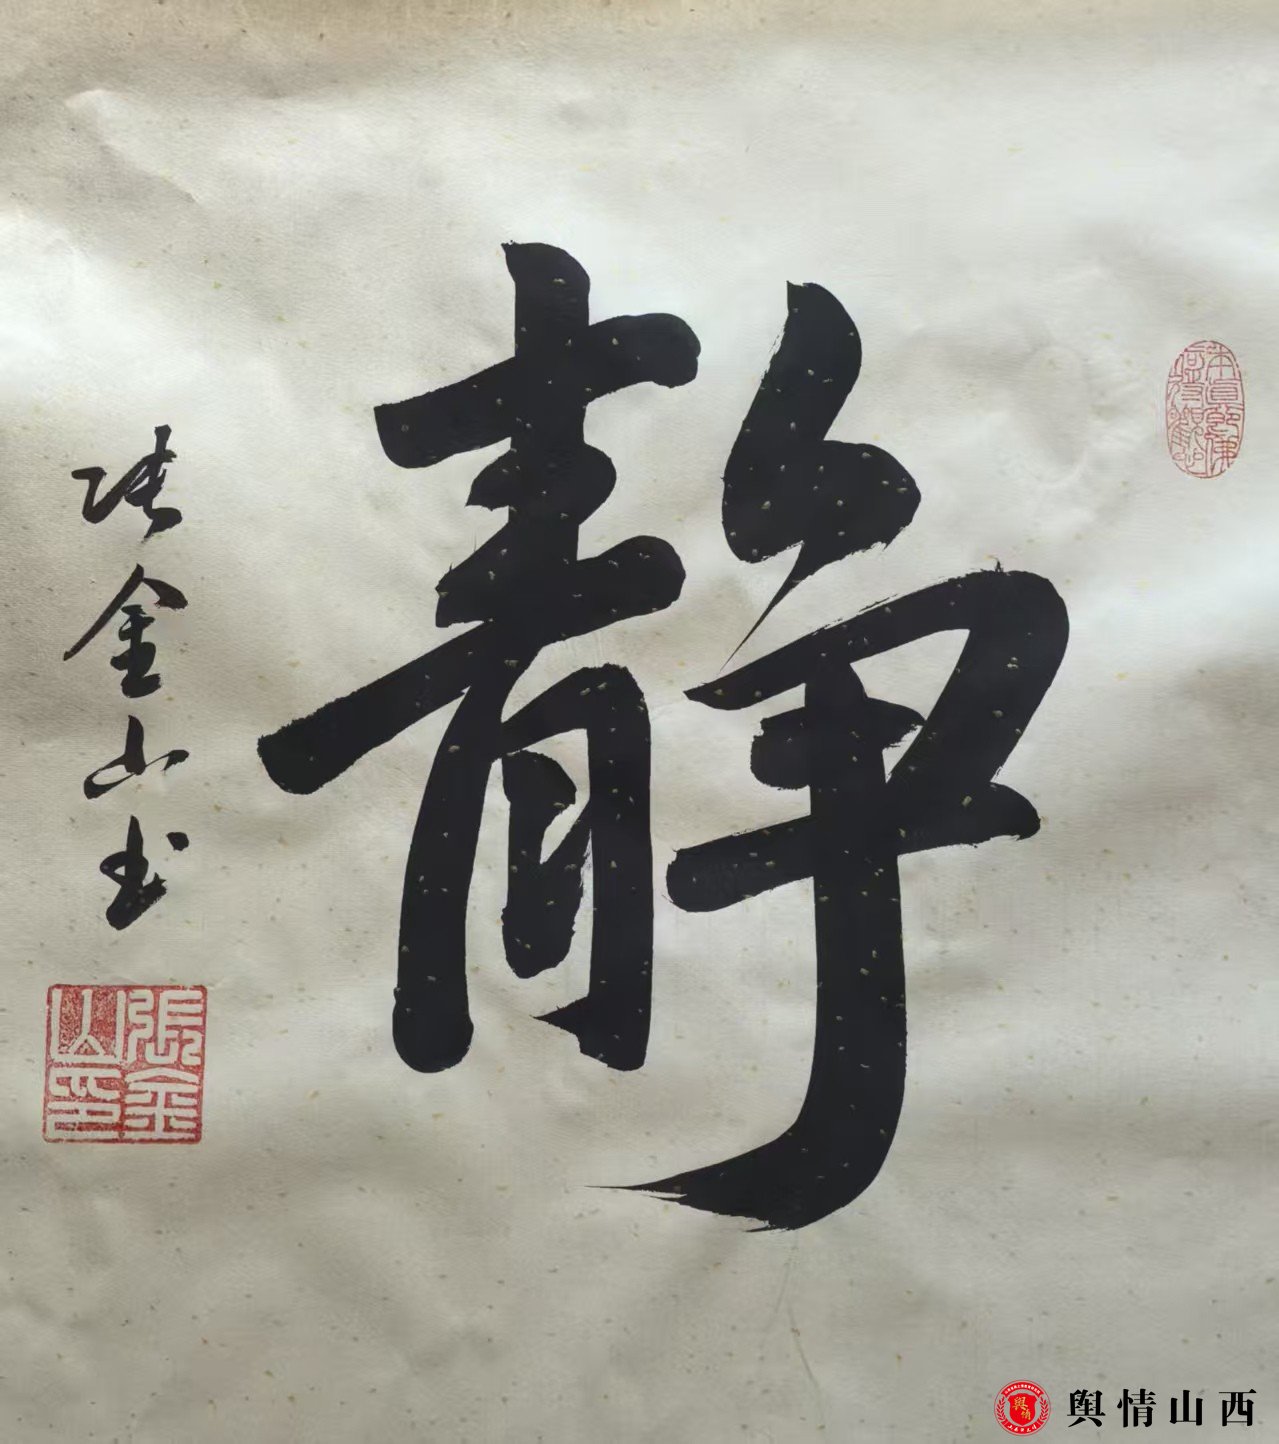 靜
张金山书
張金山印
舆情山西